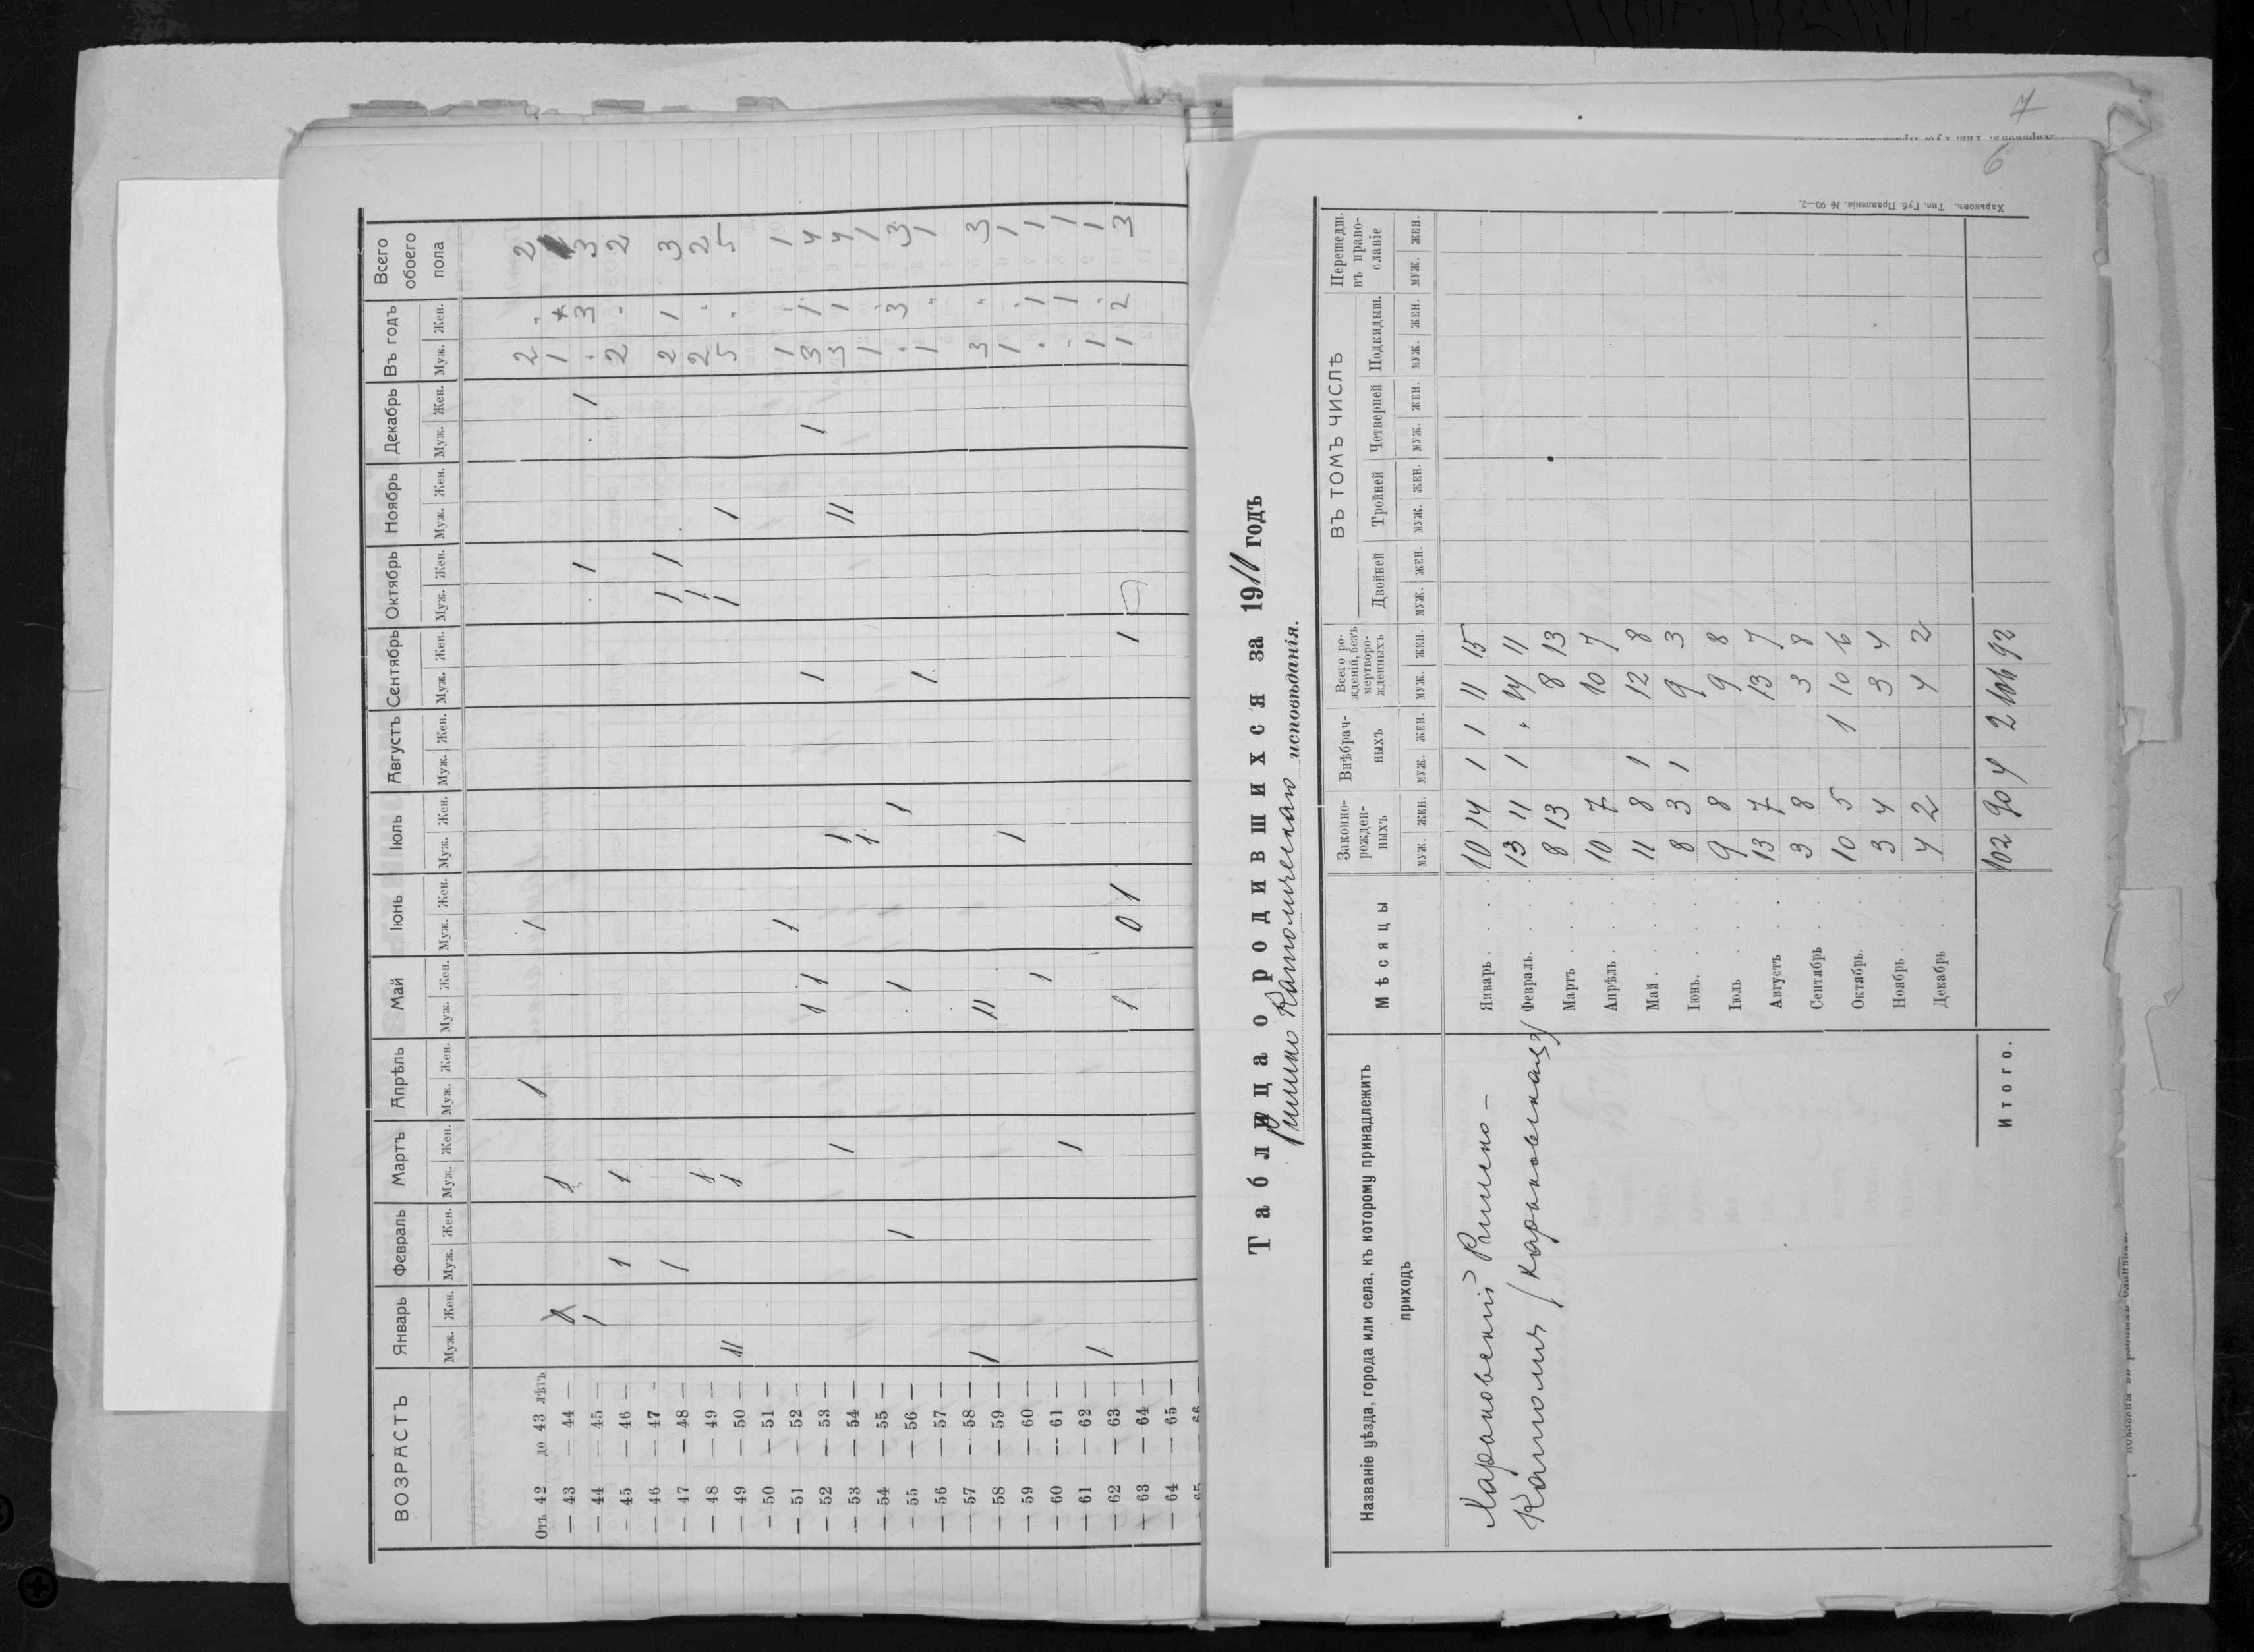 ВОЗРАСТЪ Январь Февраль Мартъ Апрѣль Май Іюнь Іюль Августъ Сентябрь Октябрь Ноябрь Декабрь Въ годъ Всего обоего пола
Муж. Жен. Муж. Жен. Муж. Жен. Муж. Жен. Муж. Жен. Муж. Жен. Муж. Жен. Муж. Жен. Муж. Жен. Муж. Жен. Муж. Жен. Муж. Жен. Муж. Жен.
Отъ 42 до 43 лѣтъ 1 1 2 - 2
— 43 — 44 — 1 1
— 44 — 45 — 1 1 1 . 3 3
— 45 — 46 — 1 1 2 . 2
— 46 — 47 - 1 1 1 2 1 3
— 47 — 48 — 1 1 2 . 2
— 48 — 49 — 11 1 1 1 5 . 5
— 49 — 50 —
— 50 — 51 — 1 1 . 1
— 51 — 52 — 1 1 1 1 3 1 4
— 52 — 53 — 1 1 11 3 1 4
— 53 — 54 — 1 1 1
— 54 — 55 — 1 1 1 . 3 3
— 55 — 56 — 1 1 1
— 56 — 57 —
— 57 — 58 — 1 11 3 3
— 58 — 59 — 1 1 . 1
— 59 — 60 — 1 . 1 1
— 60 — 61 — 1 1 1
— 61 — 62 — 1 1 . 1
— 62 — 63 — 1 1 1 1 2 3
— 63 — 64 —
— 64 — 65 —
65 — 66 —
Таблица о родившихся за 1911 годъ
Римско Католическаго исповѣданія.
Названіе уѣзда, города или села, къ которому принадлежитъ приходъ
Мѣсяцы
Законно-рожден-ныхъ
Внѣбрач-ныхъ
Всего ро-жденій, безъ мертворо-жденныхъ
ВЪ ТОМЪ ЧИСЛѢ
Двойней Тройней Четверней Подкидыш. Перешедш. въ право-славіе
муж. жен. муж. жен. муж. жен. муж. жен. муж. жен. муж. жен. муж. жен. муж. жен.
Харьковскій Римско-
Католич /Харьковская/
Январь . . . 10 14 1 1 11 15
Февраль. . . 13 11 1 " 14 11
Мартъ . . . 8 13 8 13
Апрѣль . . . 10 7 10 7
Май . . . . 11 8 1 12 8
Іюнь. . . . 8 3 1 9 3
Іюль . . . 9 8 9 8
Августъ . . 13 7 13 7
Сентябрь . . 3 8 3 8
Октябрь. . . 10 5 1 10 6
Ноябрь . . . 3 4 3 4
Декабрь . . 4 2 4 2
Итого. 102 90 4 2 106 92
Харьковъ. Тип. Губ. Правленія. № 90—2.
6
7